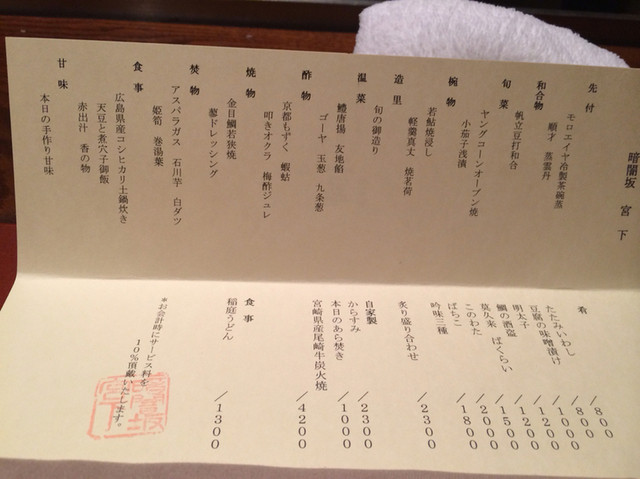 暗闇坂 宮下
先付
モロエイヤ冷製茶碗蒸
順才 蒸雲丹
和合物
帆立豆打和合
旬菜
ヤングコーンオーブン焼
小茄子浅漬
椀物
若鮎焼浸し
軽羹真丈 焼茗荷
造里
旬の御造り
温菜
鱧唐揚 友地餡
ゴーヤ 玉葱 九条葱
酢物
京都もずく 蝦蛄
叩きオクラ 梅酢ジュレ
焼物
金目鯛若狭焼
蓼ドレッシング
焚物
アスパラガス 石川芋 白ダツ
姫筍 巻湯葉
食事
広島県産コシヒカリ土鍋炊き
天豆と煮穴子御飯
赤出汁 香の物
甘味
本日の手作り甘味
肴
たたみいわし /800
豆腐の味噌漬け /1000
明太子 /800
鯛の酒盗 /1200
莫久来 ばくらい /1200
このわた /1500
ばちこ /2000
吟味三種 /1800
炙り盛り合わせ /2300
自家製
からすみ /2300
本日のあら焚き /1000
宮崎県産尾崎牛炭火焼 /4200
食事
稲庭うどん /1300
*お会計時にサービス料を
10%頂戴いたします。
暗闇坂
宮下